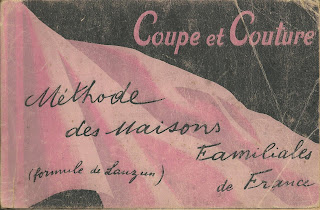 Coupe et Couture
Méthode
des Maisons
Familiales
(formule de Lauzun)
de France